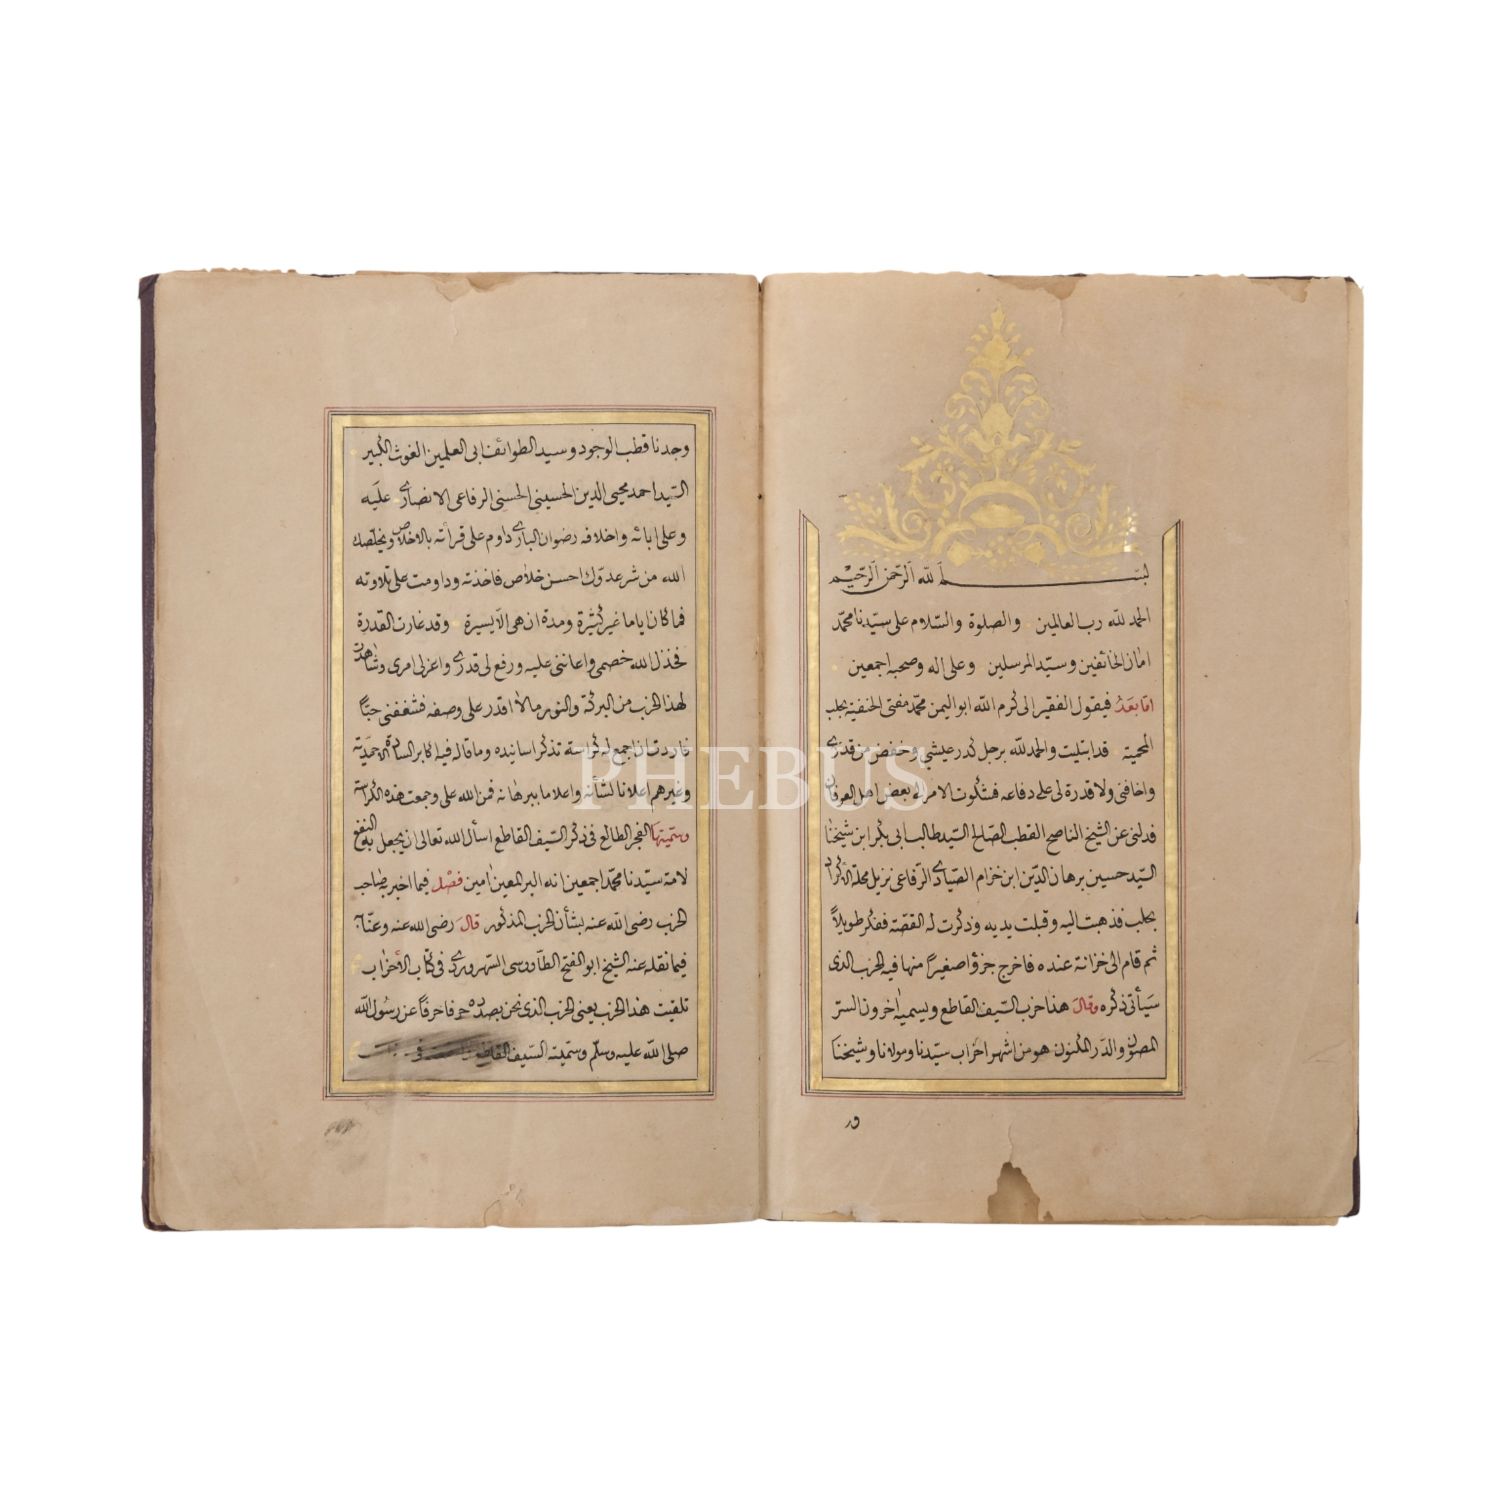 بسم الله الرحمن الرحيم
الحمد لله رب العالمين والصلوة والسّلام على سيّدنا محمّد
امان الخائفين وسيّد المرسلين وعلى اله وصحبه اجمعين
امّا بعد فيقول الفقير الى كرم الله ابو اليمن محمّد مفتى الحنفية بحلب
المحمية قد ابتليت والحمد لله برجل كدر عيشي وخفض من قدرى
واخافنى ولا قدرة لى على دفاعه فشكوت الامر الى بعض اهل العرفان
فدلنى عن الشيخ الناصح القطب الصّالح السّيد طالب ابى بكر ابن شيخنا
السيّد حسين برهان الدّين ابن خزام الصيّادى الرّفاعى نزيل محلة الاكراد
بحلب فذهبت اليه وقبلت يديه وذكرت له القصّة ففكر طويلاً
ثم قام الى خزانة عنده فاخرج جزؤا صغيراً منها فيه الحزب الذى
سيأتى ذكره وقال هذا حزب السّيف القاطع ويسميه اخرون السّر
المصون والدّر المكنون هو من اشهر احزاب سيّدنا ومولانا وشيخنا
و
وجدنا قطب الوجود وسيد الطوائف ابى العلمين الغوث الكبير
السّيد احمد محيى الدين الحسينى الحسنى الرفاعى الانصارى عليه
وعلى ابائه واخلافه رضوان البارى داوم على قرأته بالاخلاص ويخلّصك
الله من شر عدوّك احسن خلاص فاخذته وداومت على تلاوته
فما كان اياما غير كثيرة ومدة ان هى الّا يسيرة وقد غارت القدرة
فخذل الله خصمى واعاننى عليه ورفع لى قدرى واعز لى امرى وشاهدت
لهذا الحزب من البركة والنور مالا اقدر على وصفه فشغفنى حبّاً
فاردت ان اجمع له كراسة تذكر اسانيده وما قاله فيه اكابر السادة الاحمديّة
وغيرهم اعلانا لشأنه واعلاما ببرهانه فمنّ الله على وجمعت هذه الكراسة
وسمّيتها الفجر الطالع فى ذكر السّيف القاطع اسأل الله تعالى ان يجعل به النفع
لامة سيّدنا محمّد اجمعين انه البر المعين امين فصل فيما اخبر به صاحب
الحزب رضى الله عنه بشأن الحزب المذكور قال رضى الله عنه وعنّا
فيما نقله عنه الشيخ ابو الفتح الطاووسى السّهروردى فى كتاب الأحزاب
تلقيت هذا الحزب يعنى الحزب الذى نحن بصدده حرفا حرفًا عن رسول الله
صلى الله عليه وسلّم وسمّيته السّيف القاطع
PHEBUS